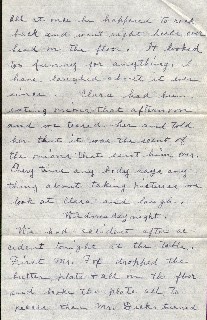 All at once he happened to rock
back and went right heels over
head on the floor. It looked
too funny for anything, I
have laughed about it ever
since. Clara had been
eating onions that afternoon
and we teased her and told
her that it was the scent of
the onions that sent him over.
Every time any body says any
thing about taking pictures we
look at Clara and laugh.
Wednesday night.
We had accident after ac
cident tonight at the table.
First Mr. Fox dropped the
butter plate & all on the floor
and broke the plate all to
pieces then Mr. turned